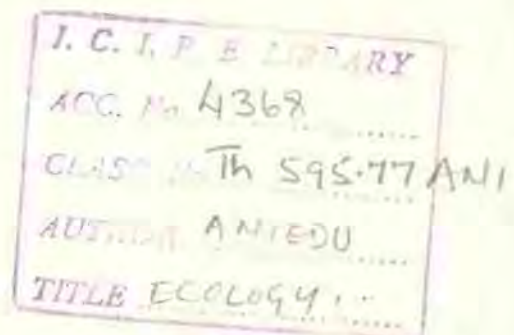 I. C. I. P. E LIBRARY
ACC. No 4368
CLASS No Th 595.77 ANI
AUTHOR ANIEDU
TITLE ECOLOGY...